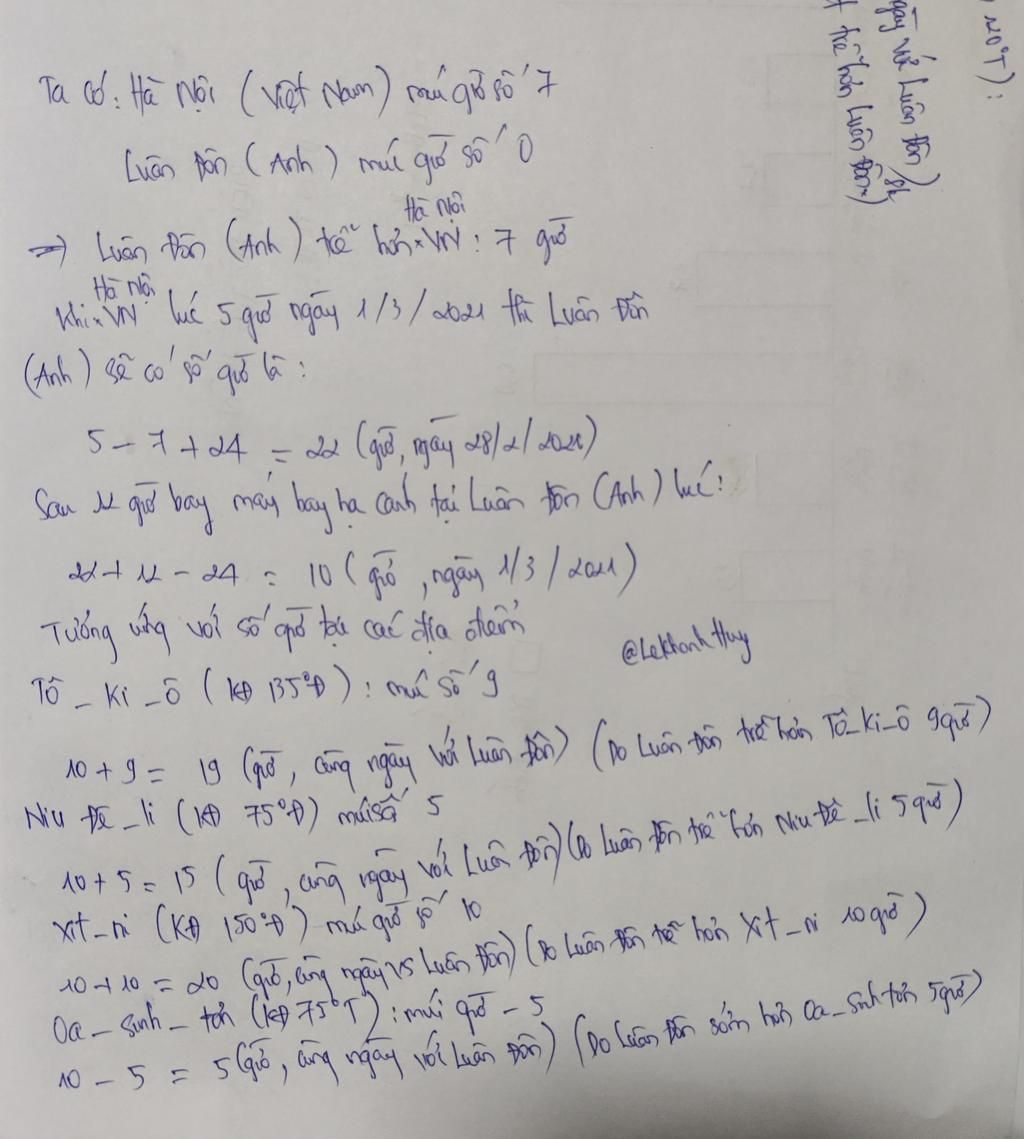 Ta có: Hà Nội (Việt Nam) múi giờ số 7
Luân Đôn (Anh) múi giờ số 0
Hà Nội
=> Luân Đôn (Anh) trễ hơn × VN: 7 giờ
Hà Nội
Khi × VN lúc 5 giờ ngày 1/3/2021 thì Luân Đôn
(Anh) sẽ có số giờ là:
5 - 7 + 24 = 22 (giờ, ngày 28/2/2021)
Sau 12 giờ bay máy bay hạ cánh tại Luân Đôn (Anh) lúc:
22 + 12 - 24 = 10 (giờ, ngày 1/3/2021)
Tương ứng với số giờ tại các địa điểm
@LeKhanhHuy
Tô_Ki_ô (KĐ 135°Đ): múi số 9
10 + 9 = 19 (giờ, cùng ngày với Luân Đôn) (Do Luân Đôn trễ hơn Tô_Ki_ô 9 giờ)
Niu Đê_li (KĐ 75°Đ) múi số 5
10 + 5 = 15 (giờ, cùng ngày với Luân Đôn) (Do Luân Đôn trễ hơn Niu Đê_li 5 giờ)
Xít_ni (KĐ 150°Đ) múi giờ số 10
10 + 10 = 20 (giờ, cùng ngày vs Luân Đôn) (Do Luân Đôn trễ hơn Xít_ni 10 giờ)
Oa_sinh_tơn (KĐ 75°T): múi giờ -5
10 - 5 = 5 (giờ, cùng ngày với Luân Đôn) (Do Luân Đôn sớm hơn Oa_sinh tơn 5 giờ)
120°T):
ngày với Luân Đôn)
trễ hơn Luân Đôn